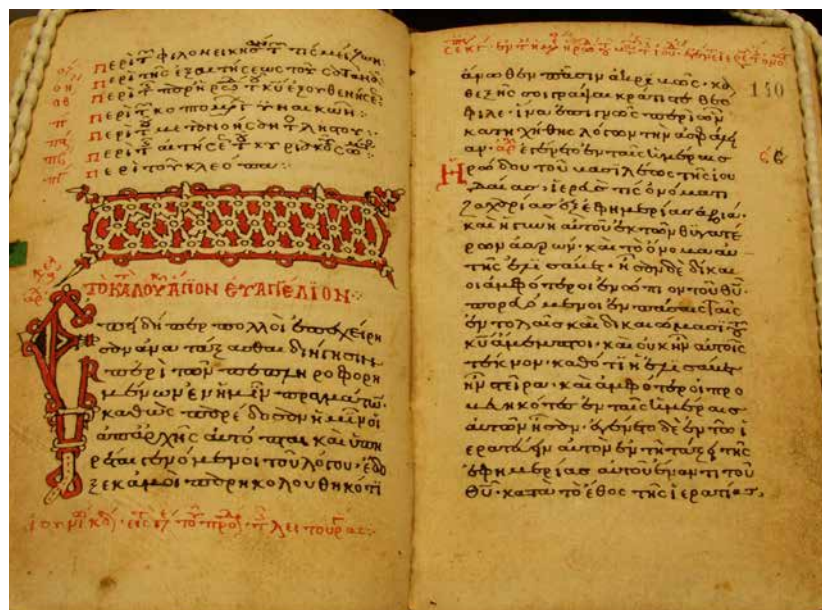 Περὶ τ φιλονεικησάντ τίς μείζων:
Περὶ τῆς ἐξαιτήσεως τοῦ σατανᾶ:
Περὶ τ
Περὶ τ κοπτομ γυναικῶν:
Περὶ τ μετανοήσ λῃστοῦ:
Περὶ τ αἰτήσε τ κυριακοῦ σώμ
Περὶ τοῦ κλεόπα:
ΤΟ Κ ΛΟΥ ΑΓΙΟΝ ΕΥΑΓΓΕΛΙΟΝ:
Ἐπειδήπερ πολλοὶ ἐπεχείρη
σαν ἀνατάξασθαι διήγησιν
περὶ τῶν πεπληροφορη
μένων ἐν ἡμῖν πραγμάτων.
καθὼς παρέδοσαν ἡμῖν οἱ
ἀπαρχῆς αὐτόπται καὶ ὑπη
ρέται γενόμενοι τοῦ λόγου· ἔδο
ξε κἀμοὶ παρηκολουθηκότι
ἄνωθεν πᾶσιν ἀκριβῶς· κα
θεξῆς σοι γράψαι κράτιστε θεό
φιλε· ἵνα ἐπιγνῷς περὶ ὧν
κατηχήθης λόγων τὴν ἀσφάλει
αν· ἐγένετο ἐν ταῖς ἡμέραις
Ἡρώδου τοῦ βασιλέως τῆς ἰου
δαίας, ἱερεύς τις ὀνόματι
ζαχαρίας ἐξ ἐφημερίας ἀβιά·
καὶ ἡ γυνὴ αὐτοῦ ἐκ τῶν θυγατέ
ρων ἀαρών· καὶ τὸ ὄνομα αὐ
τῆς ἐλισάβετ· ἦσαν δὲ δίκαι
οι ἀμφότεροι ἐνώπιον τοῦ θυ
πορευόμενοι ἐν πάσαις ταῖς
ἐντολαῖς καὶ δικαιώμασι τοῦ
κυ ἄμεμπτοι· καὶ οὐκ ἦν αὐτοῖς
τέκνον· καθότι ἡ ἐλισάβετ
ἦν στεῖρα· καὶ ἀμφότεροι προ
βεβηκότες ἐν ταῖς ἡμέραις
αὐτῶν ἦσαν· ἐγένετο δὲ ἐν τῷ ἱ
ερατεύειν αὐτὸν ἐν τῇ τάξει τῆς
ἐφημερίας αὐτοῦ ἔναντι τοῦ
θυ· κατὰ τὸ ἔθος τῆς ἱερατίας,
150